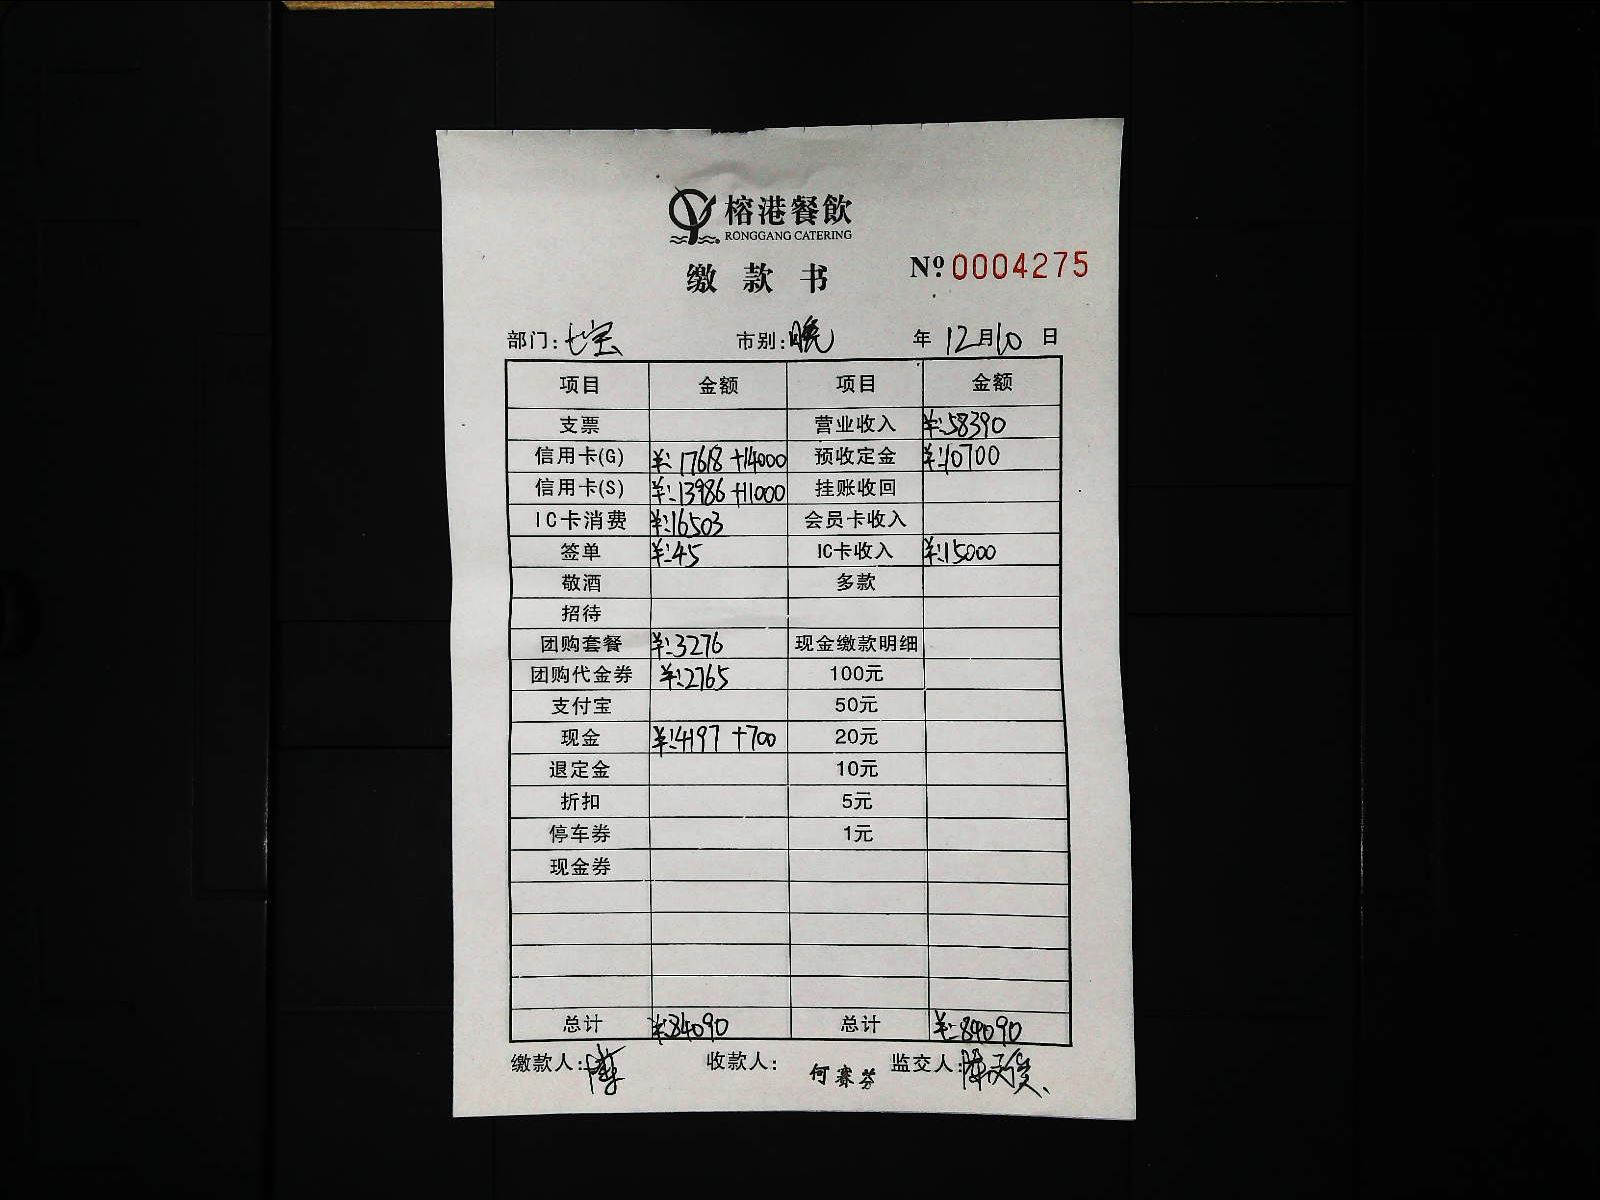 榕港餐飲
RONGGANG CATERING
缴款书 Nº 0004275
部门: 七宝 市别: 晚 年 12 月 10 日
项目 金额 项目 金额
支票 营业收入 ¥:58390
信用卡(G) ¥:17618 +14000 预收定金 ¥:10700
信用卡(S) ¥:13986 +11000 挂账收回
IC卡消费 ¥:16503 会员卡收入
签单 ¥:45 IC卡收入 ¥:15000
敬酒 多款
招待
团购套餐 ¥:3276 现金缴款明细
团购代金券 ¥:2765 100元
支付宝 50元
现金 ¥:4197 +700 20元
退定金 10元
折扣 5元
停车券 1元
现金券
总计 ¥:84090 总计 ¥:84090
缴款人: 收款人: 何赛芬 监交人: